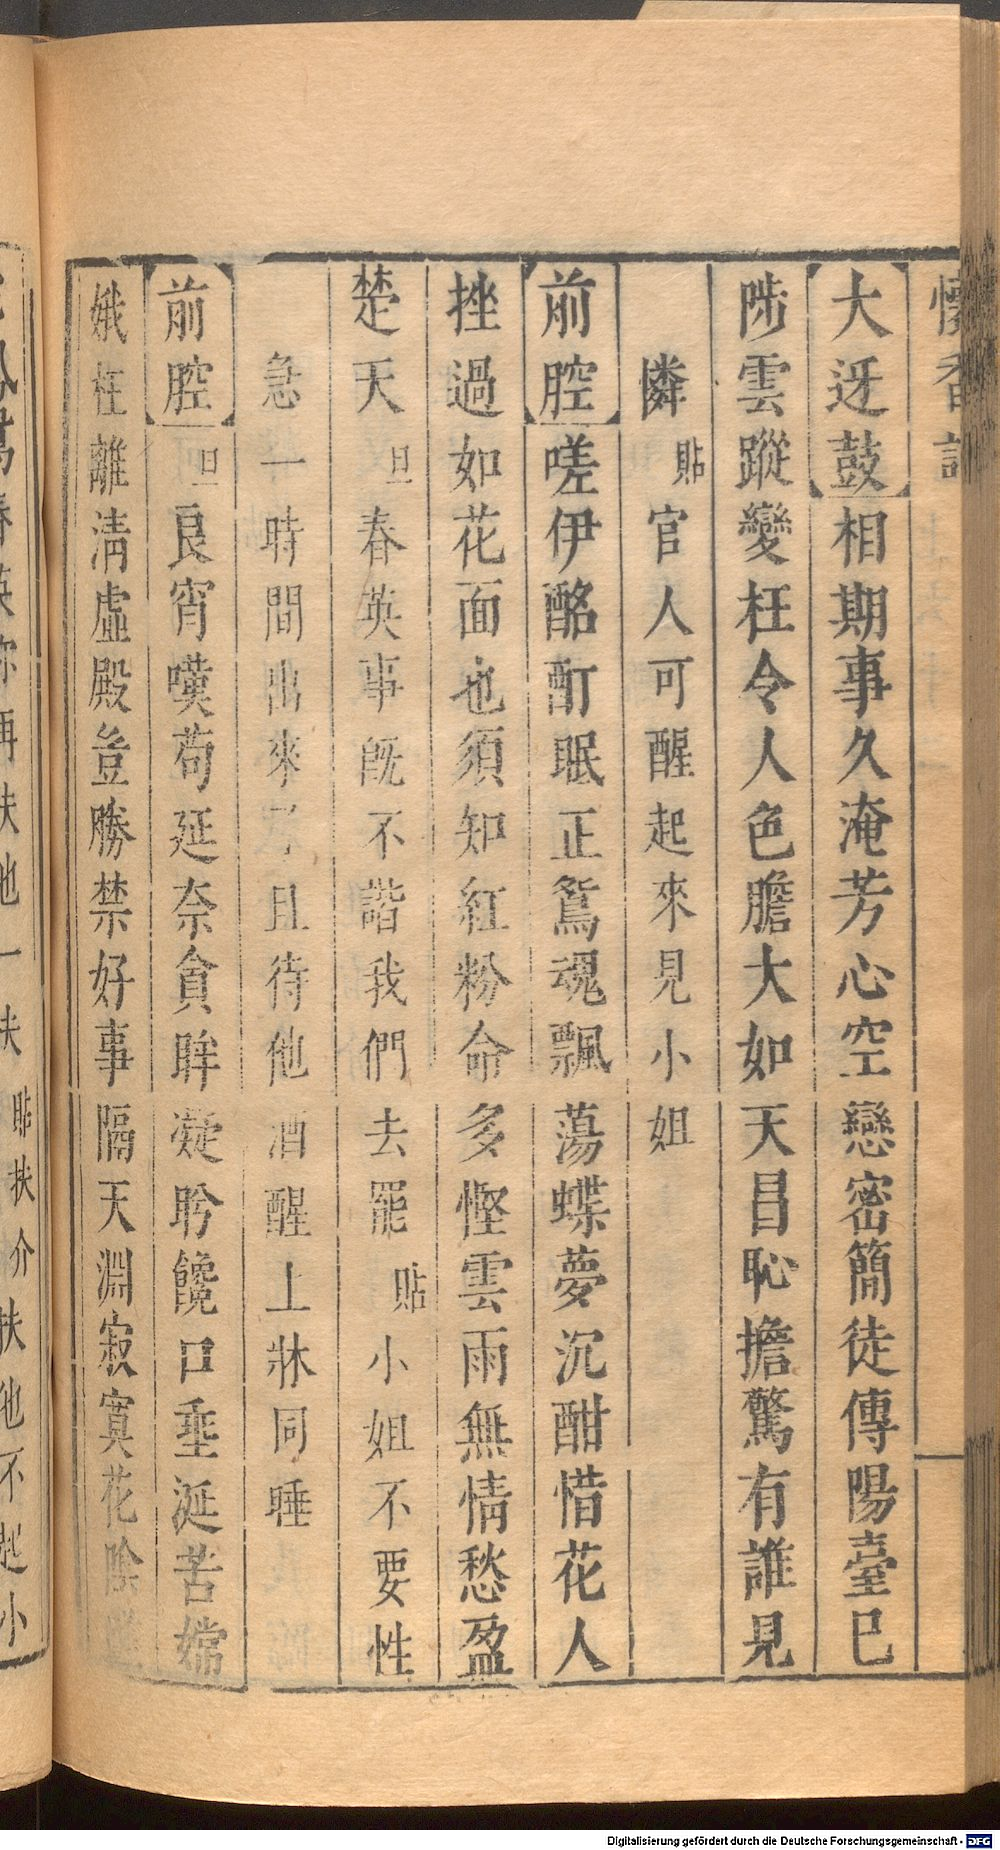 懷香記
大迓鼓相期事久淹芳心空戀密簡徒傳陽臺巳
陟雲蹤變枉令人色膽大如天昌恥擔驚有誰見
憐貼官人可醒起來見小姐
前腔嗟伊酩酊眠正鴛魂飄蕩蝶夢沉酣惜花人
挫過如花面也須知紅粉命多慳雲雨無情愁盈
楚天旦春英事旣不諧我們去罷貼小姐不要性
急一時間出來了且待他酒醒上牀同睡
前腔旦良宵嘆苟延奈貪眸凝盻饞口垂涎苦嫦
娥枉離淸虛殿豈勝禁好事隔天淵寂寞花陰
春英你再扶他一扶貼扶介扶他不起小
Digitalisierung gefördert durch die Deutsche Forschungsgemeinschaft - DFG